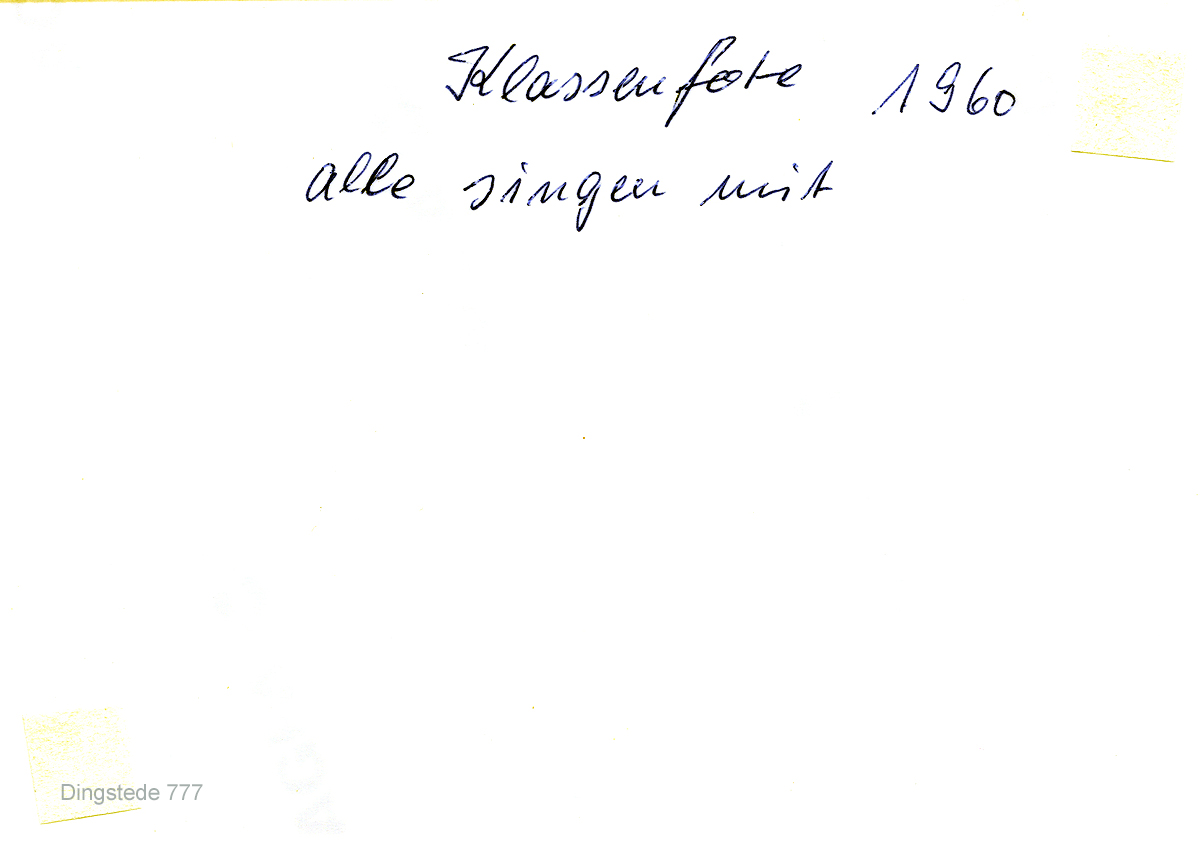 Klassenfoto 1960
alle singen mit
Dingstede 777